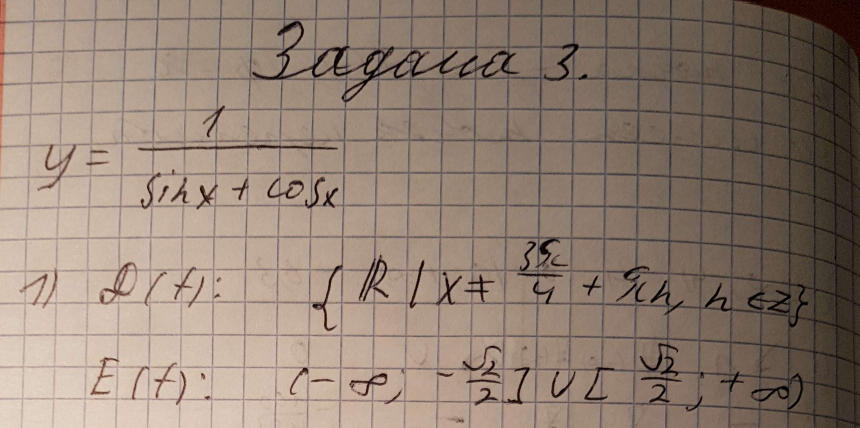 Задача 3.
y = 1 / (sin x + cos x)
1) D(f): { ℝ | x ≠ 3π/4 + πn, n ∈ z}
E(f): (-∞; -√2/2] ∪ [√2/2; +∞)